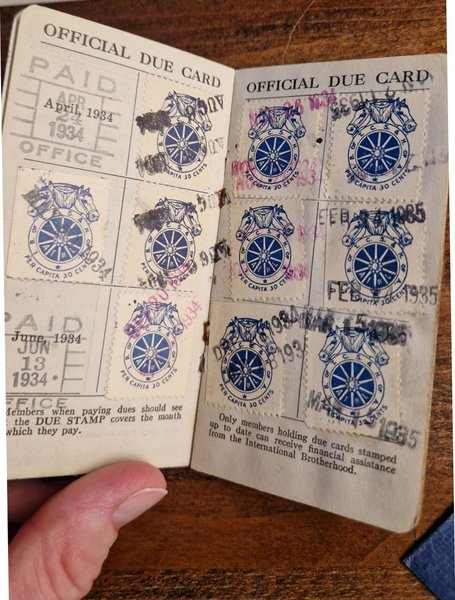 OFFICIAL DUE CARD
PAID
APR
24
April, 1934
1934
OFFICE
PER CAPITA 30 CENTS
1934
PER CAPITA 30 CENTS
PER CAPITA 30 CENTS
PAID
June, 1934
JUN
13
1934
FFICE
PER CAPITA 30 CENTS
1934
Members when paying dues should see
t the DUE STAMP covers the month
which they pay.
OFFICIAL DUE CARD
PER CAPITA 30 CENTS
PER CAPITA 30 CENTS
FEB 1935
PER CAPITA 30 CENTS
PER CAPITA 30 CENTS
FEB 1935
PER CAPITA 30 CENTS
PER CAPITA 30 CENTS
MAR 15 1935
1935
Only members holding due cards stamped
up to date can receive financial assistance
from the International Brotherhood.